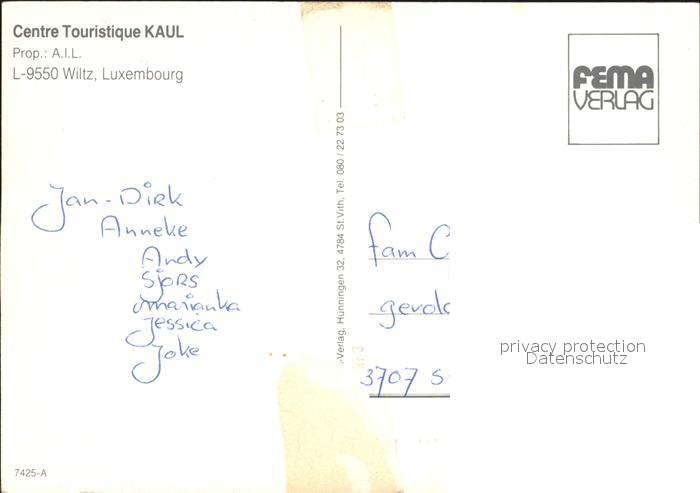 Centre Touristique KAUL
Prop.: A.I.L.
L-9550 Wiltz, Luxembourg
FEMA
VERLAG
-Verlag, Hünningen 32, 4784 St. Vith, Tel. 080 / 22 73 03
Jan-Dirk
Anneke
Andy
Sjors
Marianka
Jessica
Joke
fam C
3707 S
privacy protection
Datenschutz
7425-A